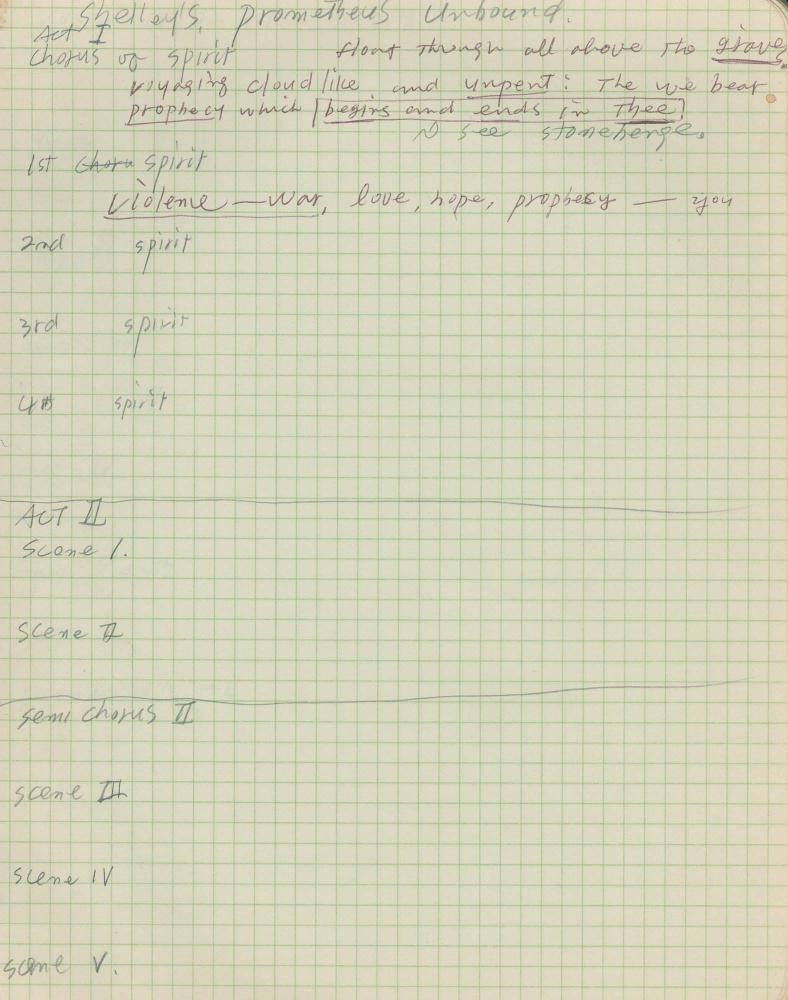 Shelley's Prometheus Unbound.
Act I
Chorus of spirit float through all above the grave,
voyaging cloudlike and unpent: The we bear
prophecy which begins and ends in Thee!
see stonehenge.
1st Choru spirit
Violense — War, love, hope, prophesy — you
2nd spirit
3rd spirit
4th spirit
ACT II
Scene 1.
Scene II
Semi Chorus II
scene III
scene IV
scene V.